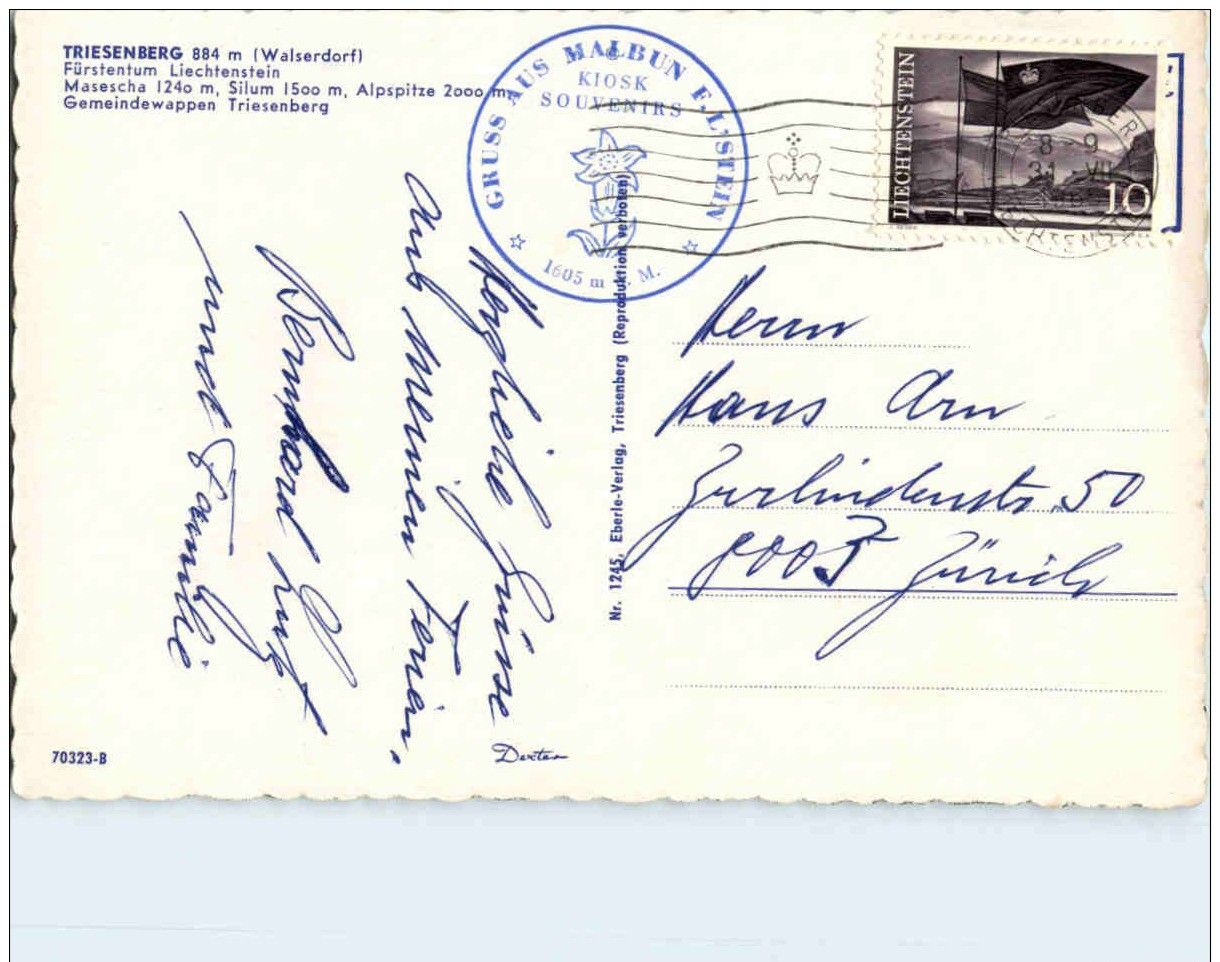 TRIESENBERG 884 m (Walserdorf)
Fürstentum Liechtenstein
Masescha 1240 m, Silum 1500 m, Alpspitze 2000 m,
Gemeindewappen Triesenberg
GRUSS AUS MALBUN F. L'STEIN
KIOSK
SOUVENIRS
1605 m M.
LIECHTENSTEIN
10
8 9
31 VII
Herzliche Grüsse
aus meinen Ferien.
Bernhard
und Familie
Nr. 1245, Eberle-Verlag, Triesenberg (Reproduktion verboten)
Herrn
Hans Arn
Zurlindenstr. 50
8003 Zürich
70323-B
Dexter